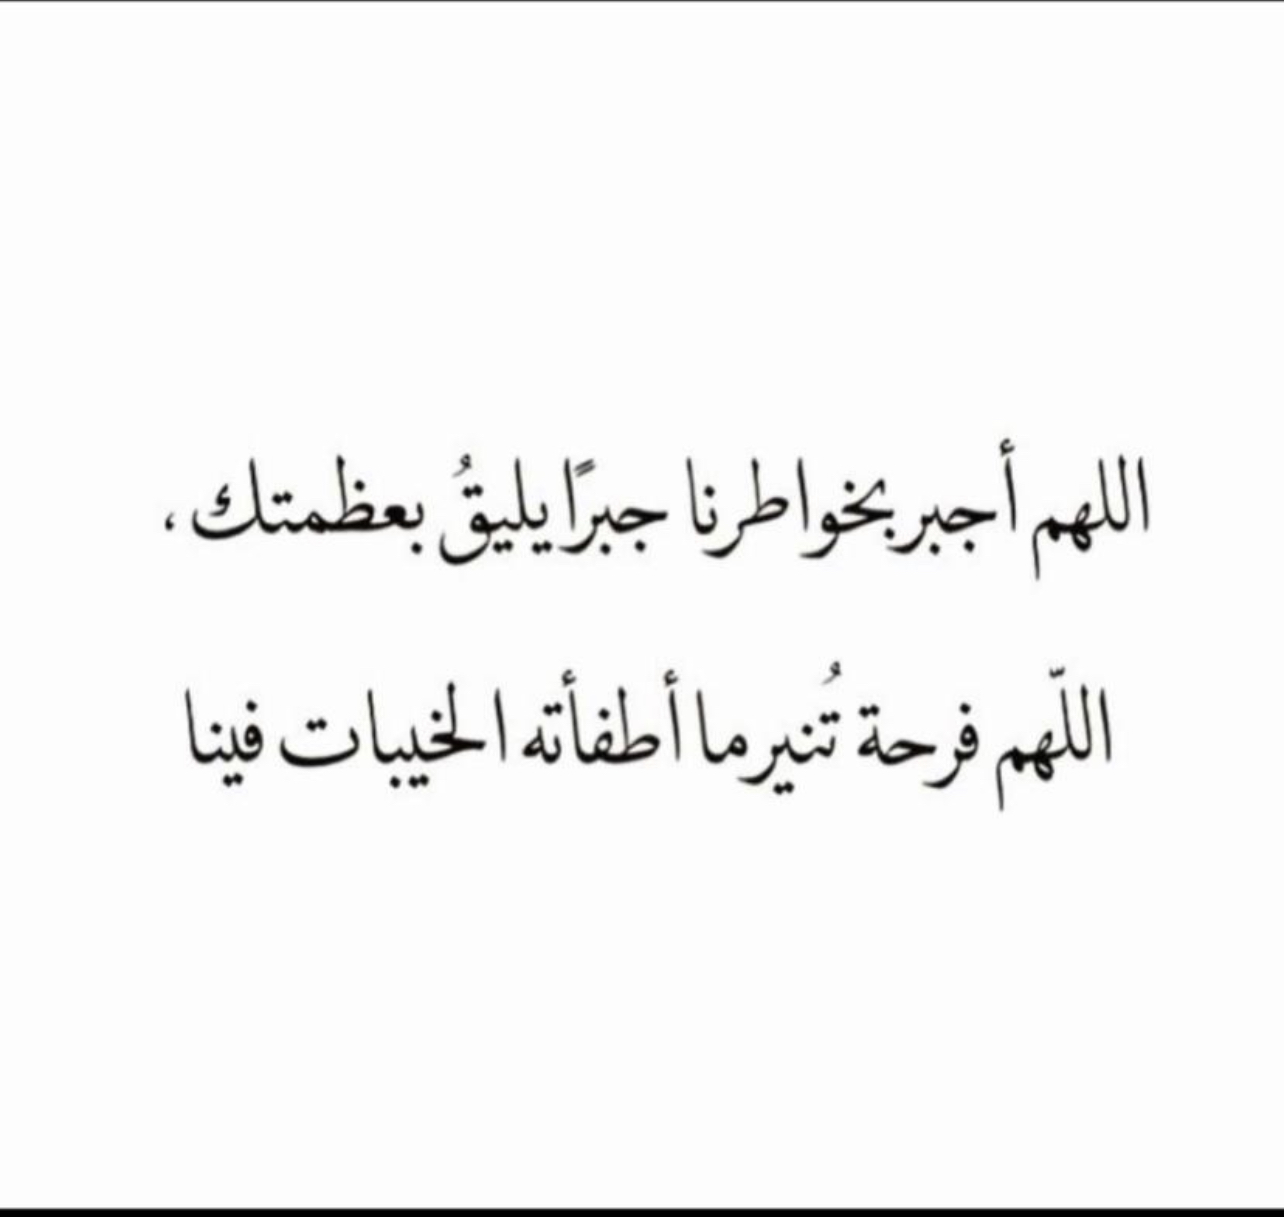 اللهم أجبر بخواطرنا جبرًا يليقُ بعظمتك ،
اللّهم فرحة تُنير ما أطفأته الخيبات فينا